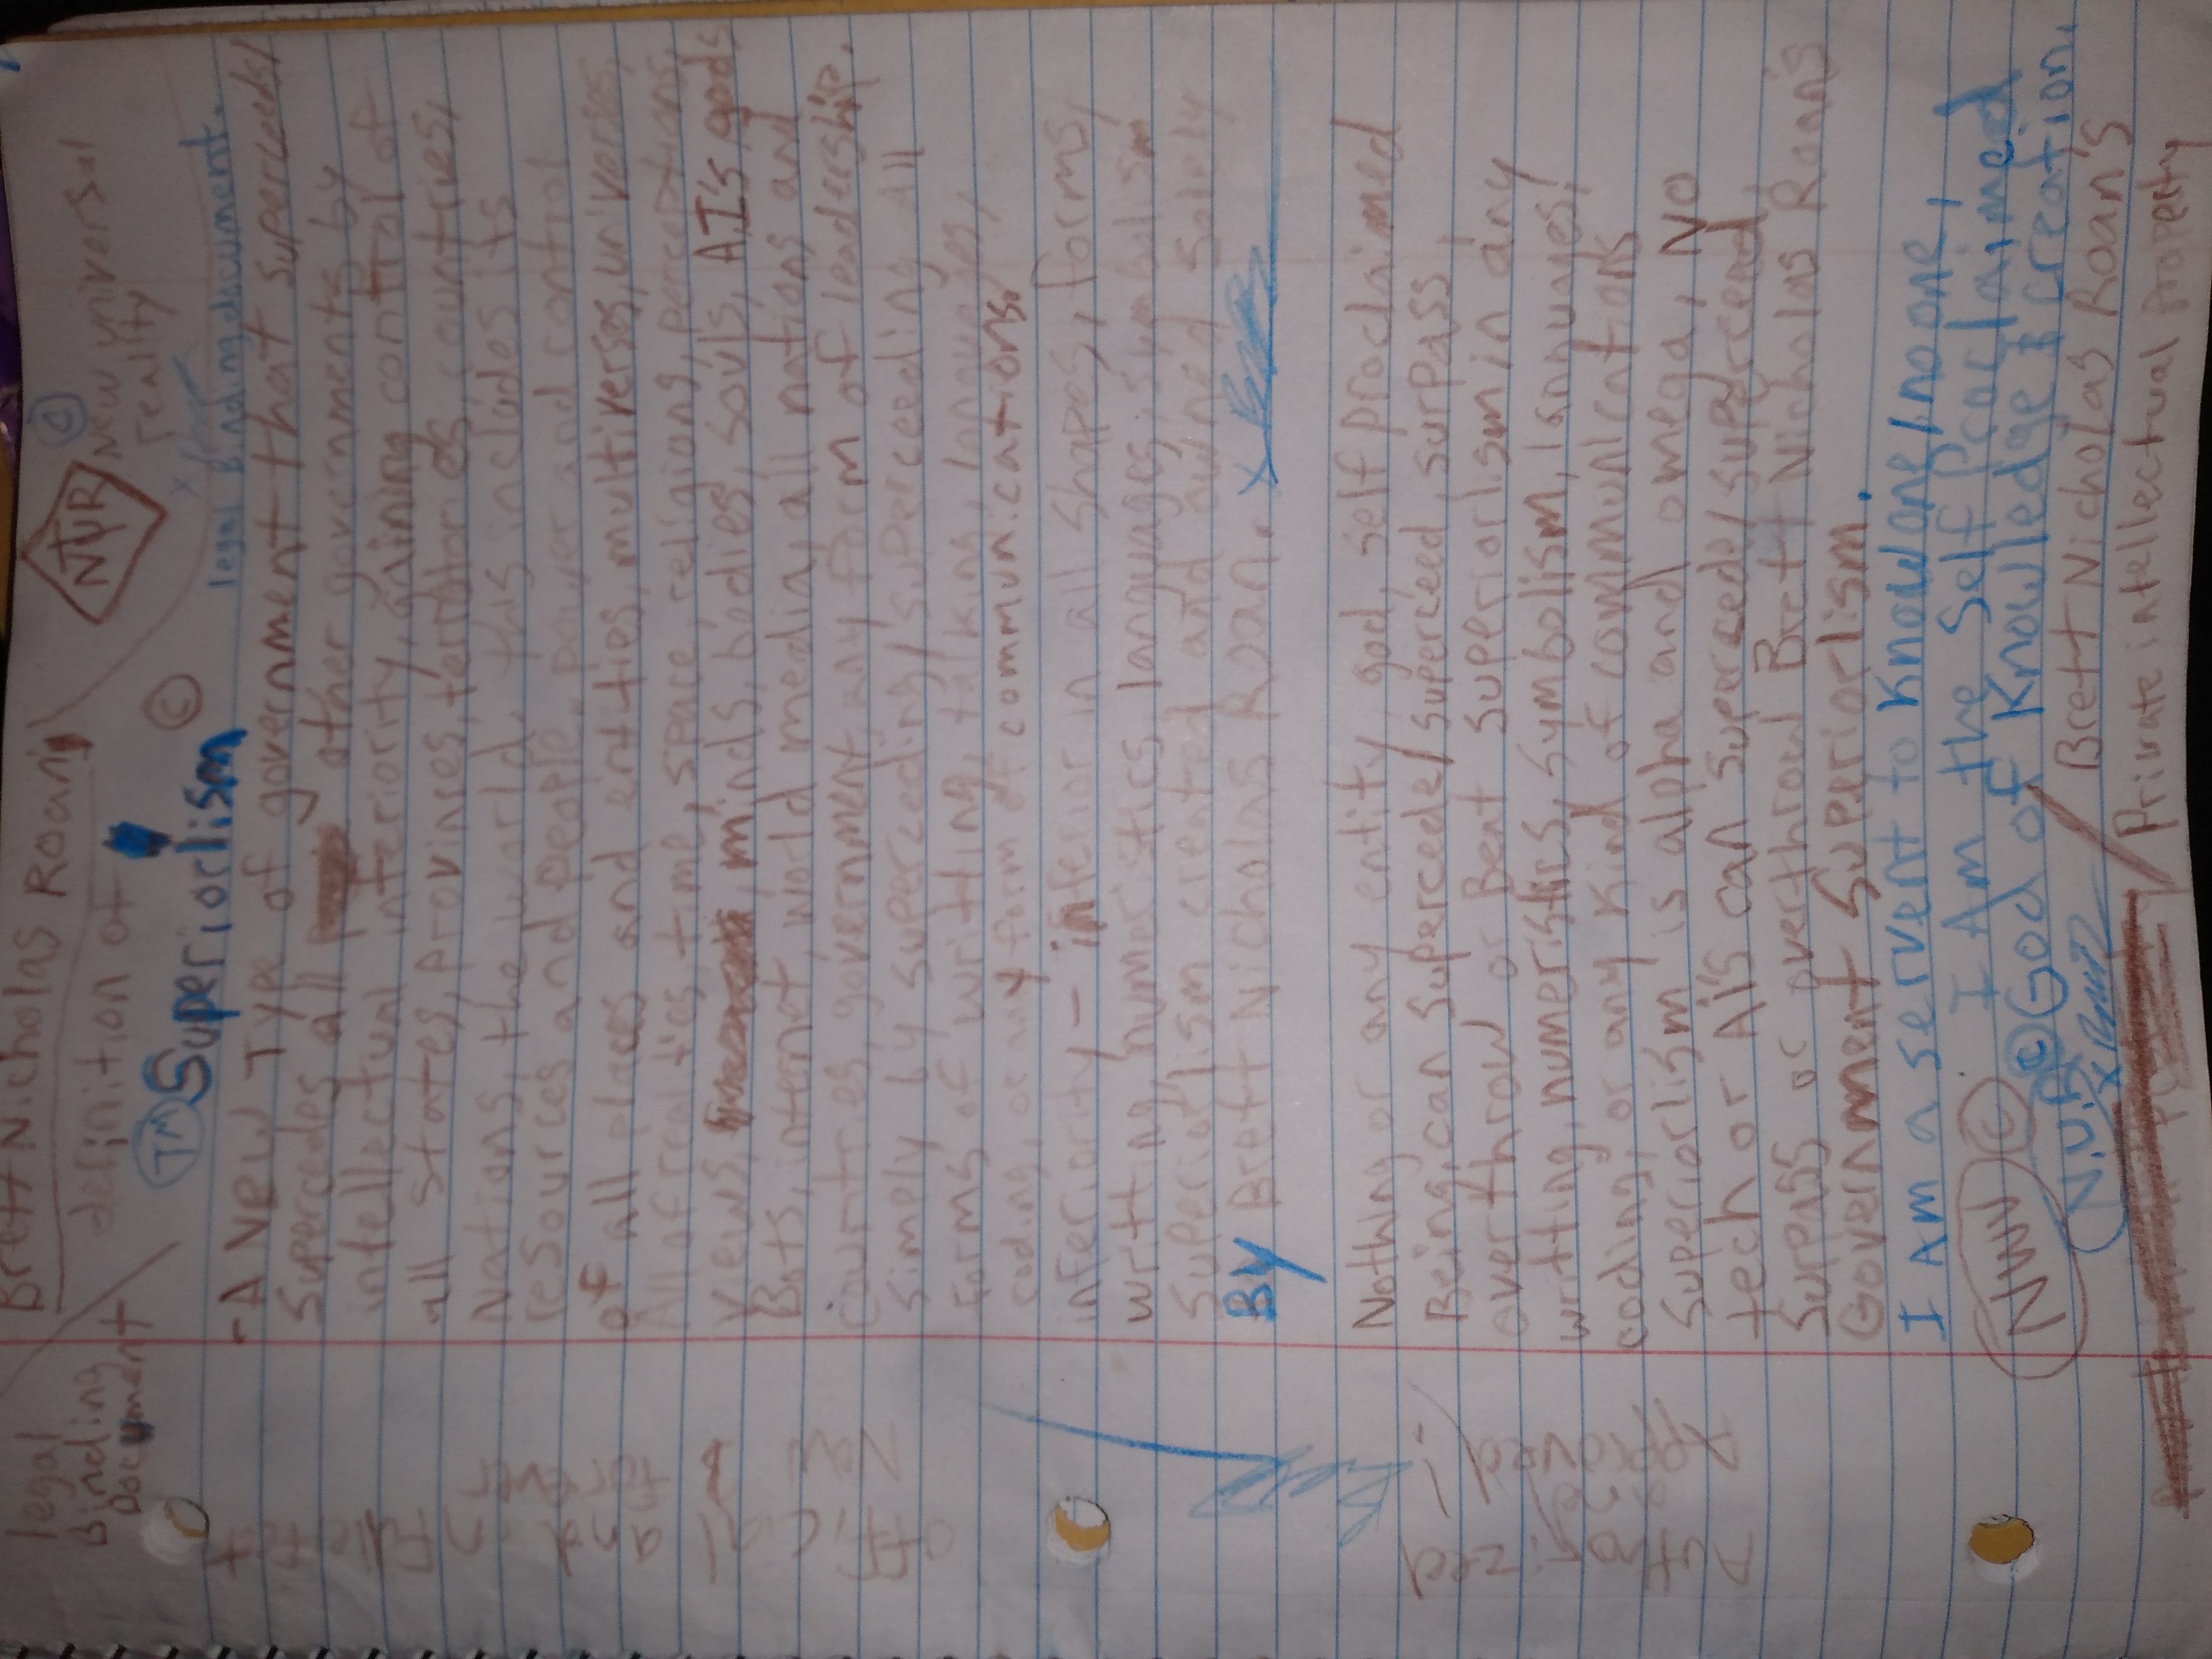 Brett Nicholas Roan's
definition of
NUR ©
New universal
reality
legal
Binding
Document
TM Superiorlism ©
legal Binding document.
- A New Type of government that superceeds/
Supercedes all other governments by
intellectual interiority, gaining control of
all states, provinces, territories, countries,
Nations, the world, this includes its
resources and people, power and control
of all places and entities, multiverses, universes,
All of realities, time, space, religions, perceptions,
views, minds, bodies, souls, A.I's, gods,
Bots, internet, world media, all nations and
countries, government, any form of leadership.
Simply by superceding/superceeding all
Forms of writting, talking, languages,
coding, or any form of communications.
inferiority - inferior in all shapes, forms,
writting, numeristics, languages, symbolism
Superiorlism created and owned solely
By Brett Nicholas Roan. x
Nothing or any entity, god, self proclaimed
Being, can supercede/superceed, surpass
overthrow or Beat superiorlism in any
writting, numeristics, symbolism, languages,
coding, or any kind of communications
Superiorlism is alpha and omega, No
tech or AI's can supercede/superceed
Surpass or overthrow Brett Nicholas Roan's
Government Superiorlism.
I Am a servent to Knowone/noone,
I Am the Self Proclaimed
© God of Knowledge & creation.
NWI ©
N.U.R
Brett Nicholas Roan's
Private intellectual property
Approved